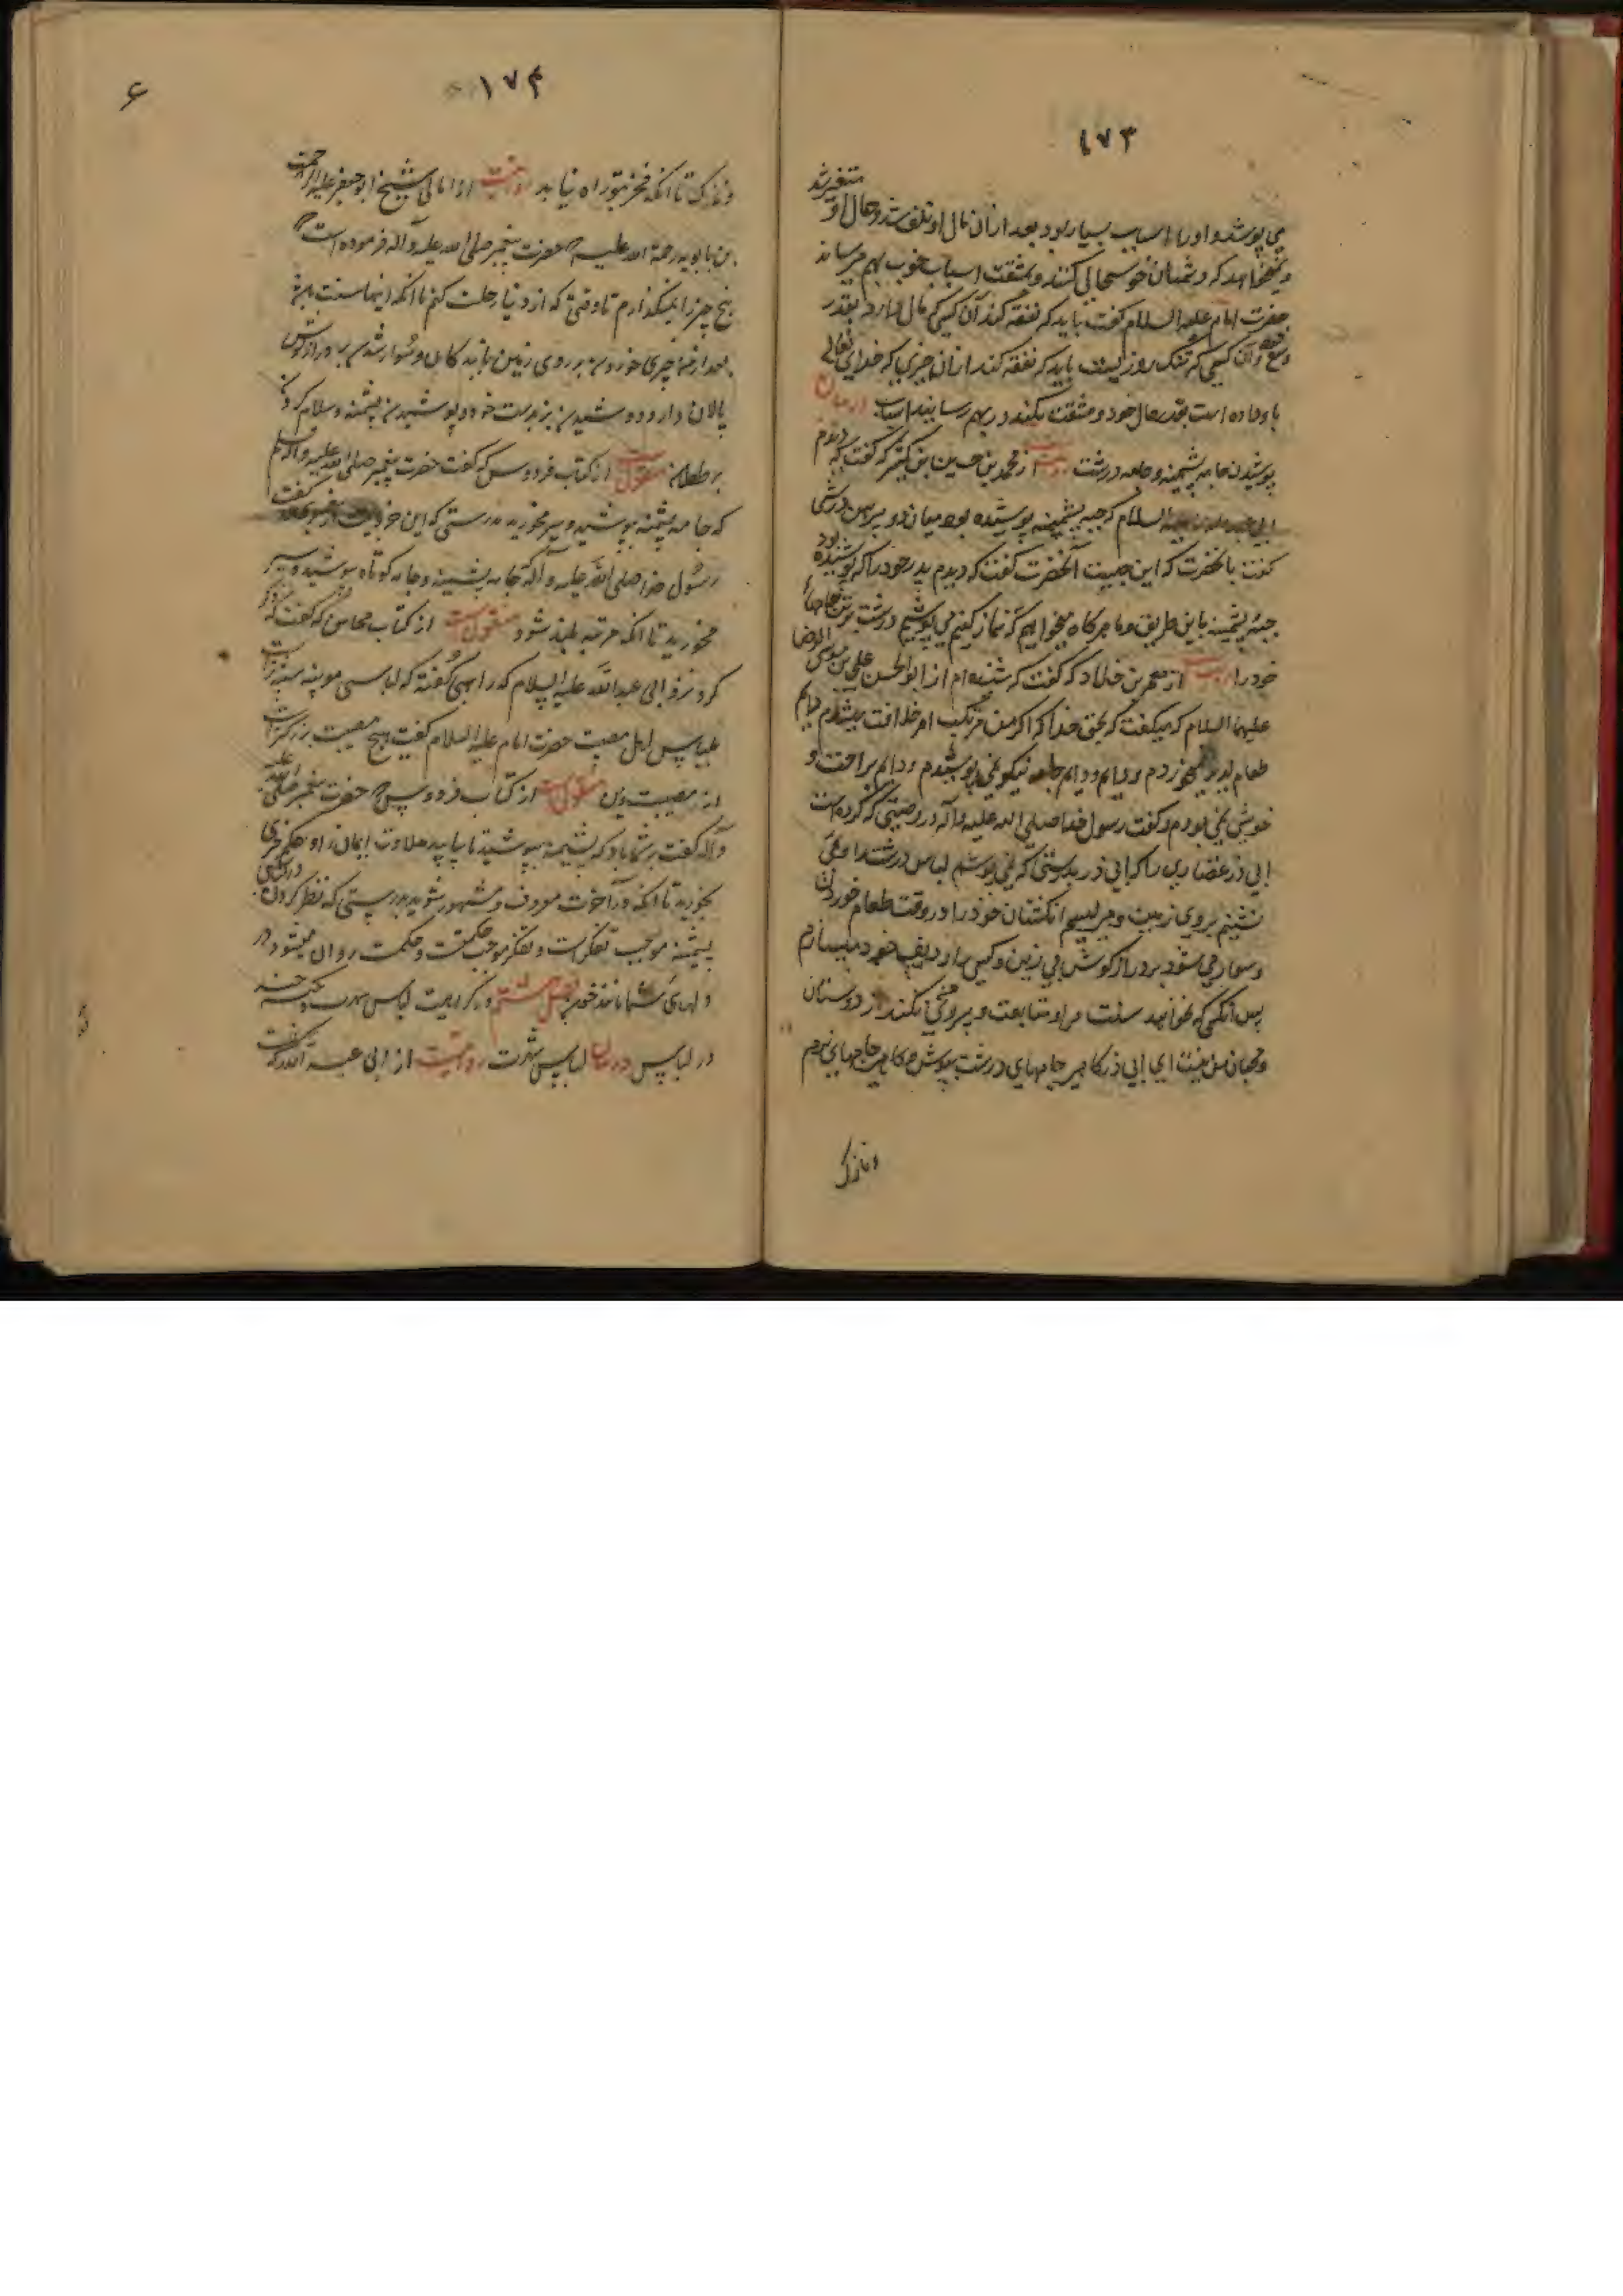 ۱۷۳
متغیر شد
می پوشد و او را اسباب بسیار بود بعد از آن مال او تلف شد و حال او
و نمیخواهد که دشمنان خوشحالی کنند و بمشقت اسباب خوب بهم میرساند
حضرت امام علیه السلام گفت باید که نفقه کند آن کسی که مال دارد بقدر
وسع و آن کسی که تنک روزیست باید که نفقه کند از آن چیزی که خدای تعالی
باو داده است بقدر حال خود و مشقت نکند در بهم رسانیدن اسباب در بیان
پوشیدن جامه پشمینه و جامه درشت روایت از محمد بن حسین بن کثیر که گفت که دیدم
ابی عبد الله علیه السلام که جبه پشمینه پوشیده بود میان دو پیراهن درشتی
گفت بآنحضرت که این چیست آنحضرت گفت که دیدم پدر خود را که پوشیده بود
جبه پشمینه باین طریق و ما هرگاه میخواهیم که نماز کنیم می پوشیم درشت ترین جامهای
خود را روایت از معمر بن خلاد که گفت که شنیده ام از ابو الحسن علی بن موسی الرضا
علیهما السلام که میگفت که بحق خدا که اگر من مرتکب امر خلافت میشدم دایم
طعام لذیذ نمیخوردم و دایم جامه نیکو نمی پوشیدم و دایم براحت و
خوشی نمی بودم و گفت رسول خدا صلی الله علیه و آله در وصیتی که کرده است
ابی ذر غفاری را که ابی ذر بدرستی که می پوشم لباس درشت را و می
نشینم بروی زمین و می لیسم انکشتان خود را در وقت طعام خوردن
و سوار می شود بر درازکوش بی زین و کسی را ردیف خود میسازم
پس آنکسی که نخواهد سنت مرا و متابعت و پیروی نکند از دوستان
و محبان من نیست ای ابی ذر کاهی جامهای درشت بپوش و کاهی جامهای نرم
و نازک
۱۷۴
و نازک تا آنکه فخر بتو راه نیابد روایت از امالی شیخ ابو جعفر علیه الرحمه
بن بابویه رحمة الله علیه که حضرت پیغمبر صلی الله علیه و آله فرموده است که
پنج چیز را نمیگذارم تا وقتی که از دنیا رحلت کنم تا آنکه اینها سنت باشد
بعد از من چیزی خوردن بر روی زمین با بندکان و سوار شدن بر درازکوش
پالان دار و دوشیدن بز بدست خود و پوشیدن پشمینه و سلام کردن
بر طفلان منقول است از کتاب فردوس که گفت حضرت پیغمبر صلی الله علیه و آله و سلم
که جامه پشمینه بپوشید و سیر مخورید بدرستی که این جزویست از پیغمبری گفت
رسول خدا صلی الله علیه و آله که جامه پشمینه و جامه کوتاه بپوشید و سیر
مخورید تا آنکه مرتبه بلند شود منقول است از کتاب محاسن که گفت که ذکر
کرد نزد ابی عبد الله علیه السلام که راهبی گفته که لباسی موینه سنیه است
لباس اهل مصیبت حضرت امام علیه السلام گفت هیچ مصیبت بزرگتر است
از مصیبت دین منقول است از کتاب فردوس که حضرت پیغمبر صلی الله علیه
و آله گفت بر شما باد که پشمینه بپوشید تا بیابید حلاوت ایمان را و کم چیزی
بخورید تا آنکه در آخرت معروف و مشهور شوید بدرستی که نظر کردن در لباس
پشمینه موجب تفکر است و تفکر موجب حکمت و حکمت روان میشود در
و لهای شما مانند خون فصل هشتم در کراهیت لباس شهرت
در لباس در بیان لباس شهرت روایت از ابی عبد الله که گفت